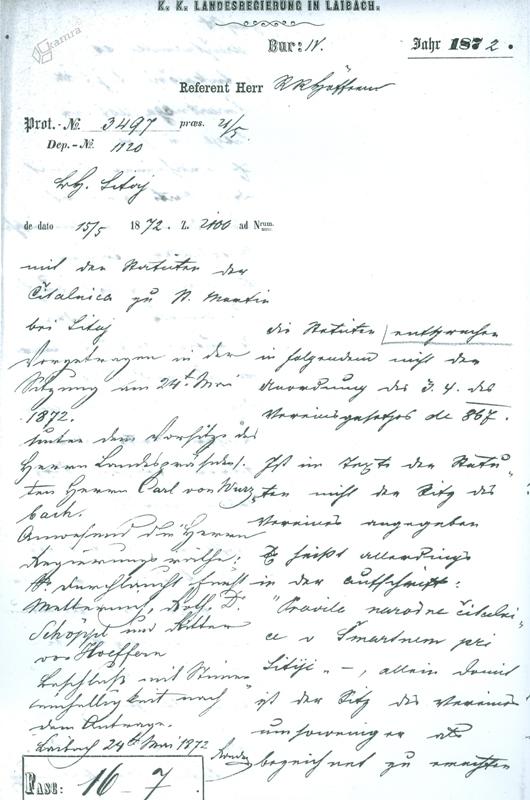 K. K. LANDESREGIERUNG IN LAIBACH.
kamra
Bur: IV.
Jahr 1872.
Referent Herr RR Höffern
Prot.-№ 3497 præs. 21/5
Dep.-№ 1120
Bh. Litaj
de dato 15/5 1872. Z. 2100 ad Num.
mit den Statuten der
Čitalnica zu St. Martin
bei Litaj
Vorgetragen in der
Sitzung am 24t. Mai
1872.
unter dem Vorsitze des
Herrn Landespräsiden-
ten Herrn Carl von Wurz
bach.
Anwesend die Herren
Regierungsräthe:
Durchlaucht Fürst
Metternich, Roth, Dr.
Schöppl und Ritter
von Hoeffern
Beschluß mit Stimmen
einhelligkeit nach
dem Antrage.
Laibach 24ten Mai 1872
die Statuten entsprechen
in folgendem nicht der
Anordnung des §. 4. des
Vereinsgesetzes de 867.
Ist im Texte der Statu-
ten nicht der Sitz des
Vereines angegeben
Es heißt allerdings
in der Aufschrift:
"Pravila narodne čitalni-
ce v Šmartnem pri
Litiji" –, allein damit
ist der Sitz des Vereines
umsoweniger als
bezeichnet zu erachten
FASC: 16–7